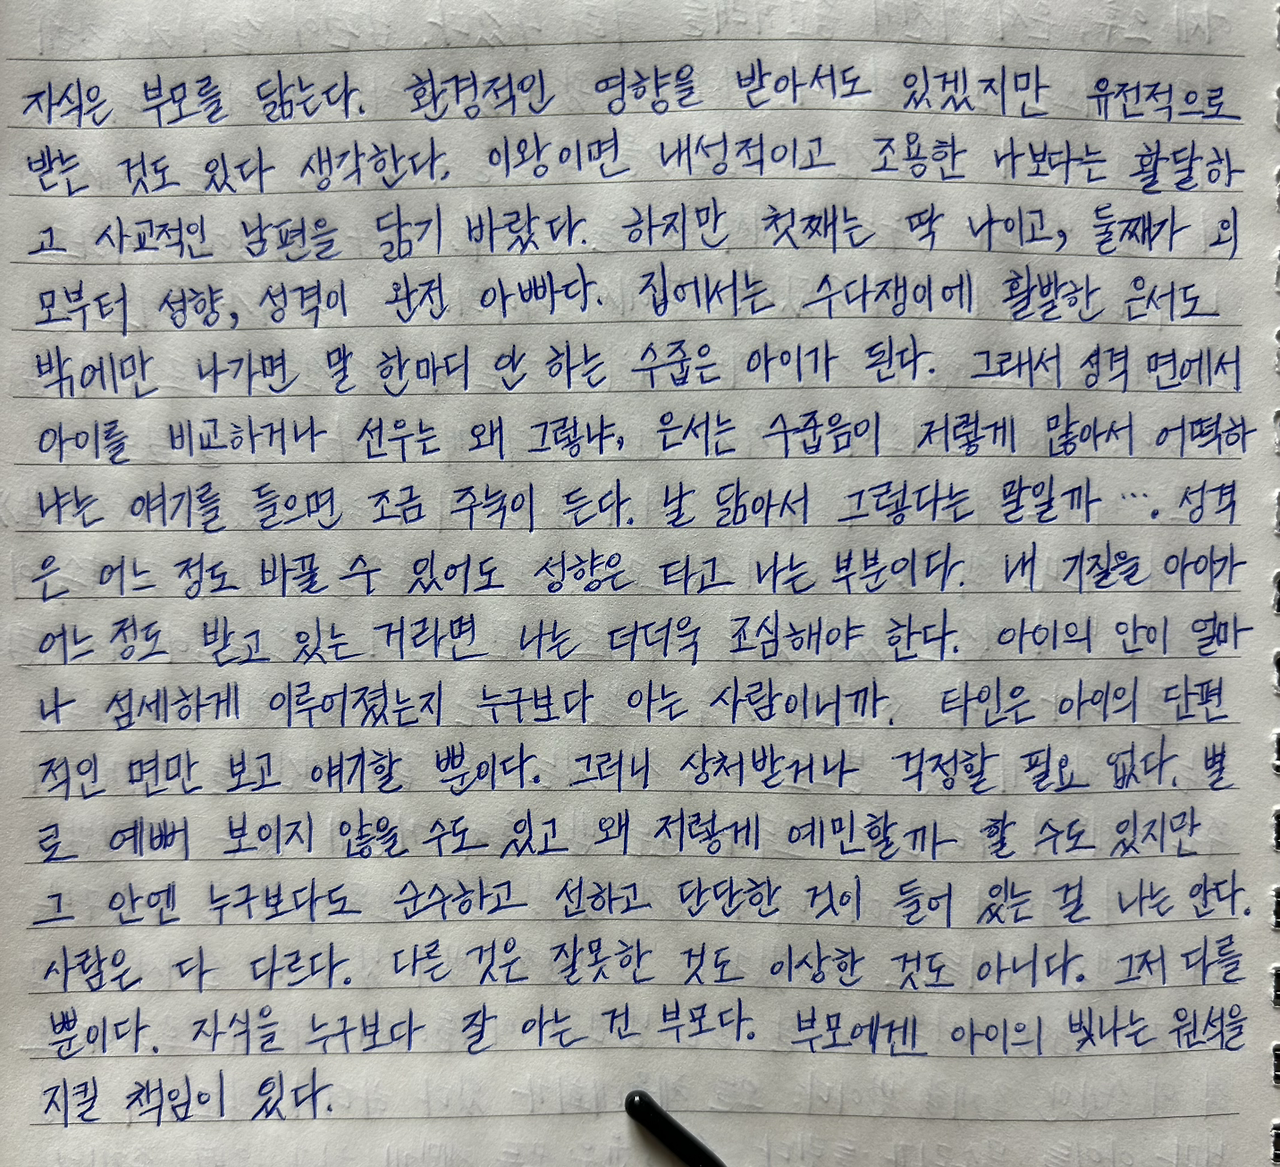 자식은 부모를 닮는다. 환경적인 영향을 받아서도 있겠지만 유전적으로
받는 것도 있다 생각한다. 이왕이면 내성적이고 조용한 나보다는 활달하
고 사교적인 남편을 닮기 바랐다. 하지만 첫째는 딱 나이고, 둘째가 외
모부터 성향, 성격이 완전 아빠다. 집에서는 수다쟁이에 활발한 은서도
밖에만 나가면 말 한마디 안 하는 수줍은 아이가 된다. 그래서 성격 면에서
아이를 비교하거나 선우는 왜 그렇냐, 은서는 수줍음이 저렇게 많아서 어떡하
냐는 얘기를 들으면 조금 주눅이 든다. 날 닮아서 그렇다는 말일까 …. 성격
은 어느 정도 바꿀 수 있어도 성향은 타고 나는 부분이다. 내 기질을 아이가
어느 정도 받고 있는 거라면 나는 더더욱 조심해야 한다. 아이의 안이 얼마
나 섬세하게 이루어졌는지 누구보다 아는 사람이니까. 타인은 아이의 단편
적인 면만 보고 얘기할 뿐이다. 그러니 상처받거나 걱정할 필요 없다. 별
로 예뻐 보이지 않을 수도 있고 왜 저렇게 예민할까 할 수도 있지만
그 안엔 누구보다도 순수하고 선하고 단단한 것이 들어 있는 걸 나는 안다.
사람은 다 다르다. 다른 것은 잘못한 것도 이상한 것도 아니다. 그저 다를
뿐이다. 자식을 누구보다 잘 아는 건 부모다. 부모에겐 아이의 빛나는 원석을
지킬 책임이 있다.